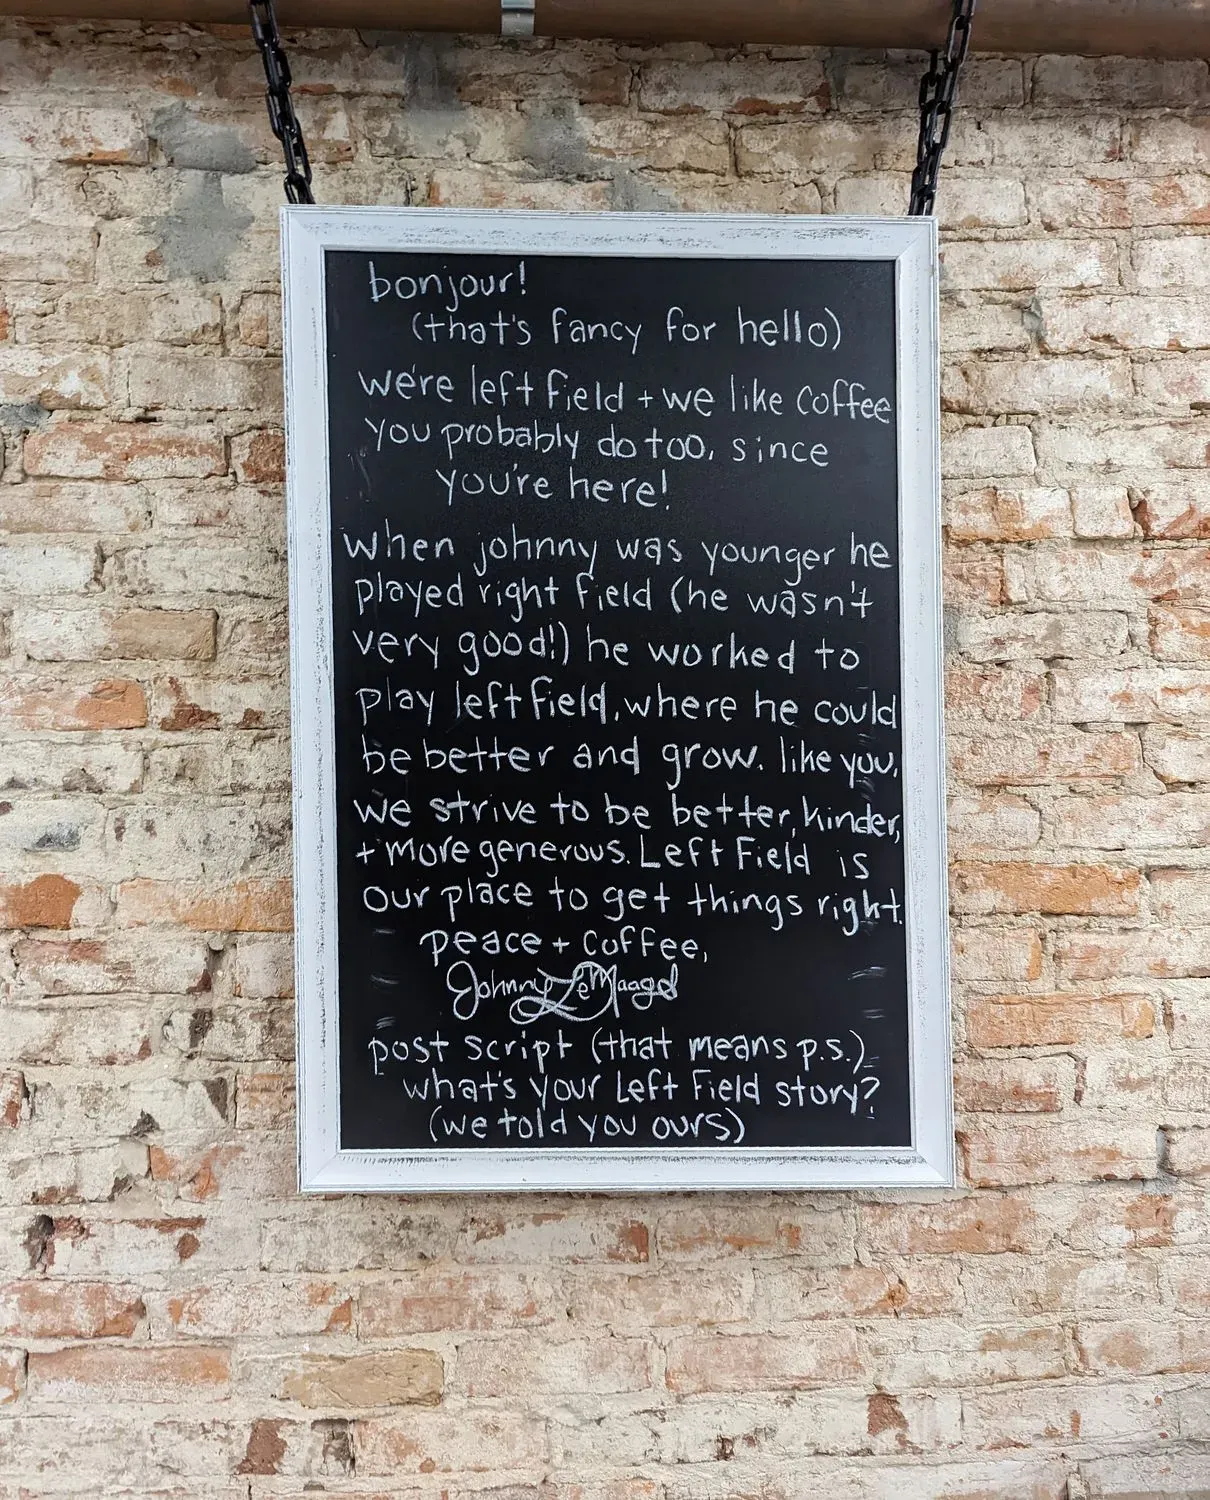 bonjour!
(that's fancy for hello)
we're left field + we like coffee
you probably do too, since
you're here!
when johnny was younger he
played right field (he wasn't
very good!) he worked to
play left field, where he could
be better and grow. like you,
we strive to be better, kinder,
+ more generous. Left Field is
our place to get things right.
peace + coffee,
Johnny LeMaagd
post script (that means p.s.)
what's your Left Field story?
(we told you ours)